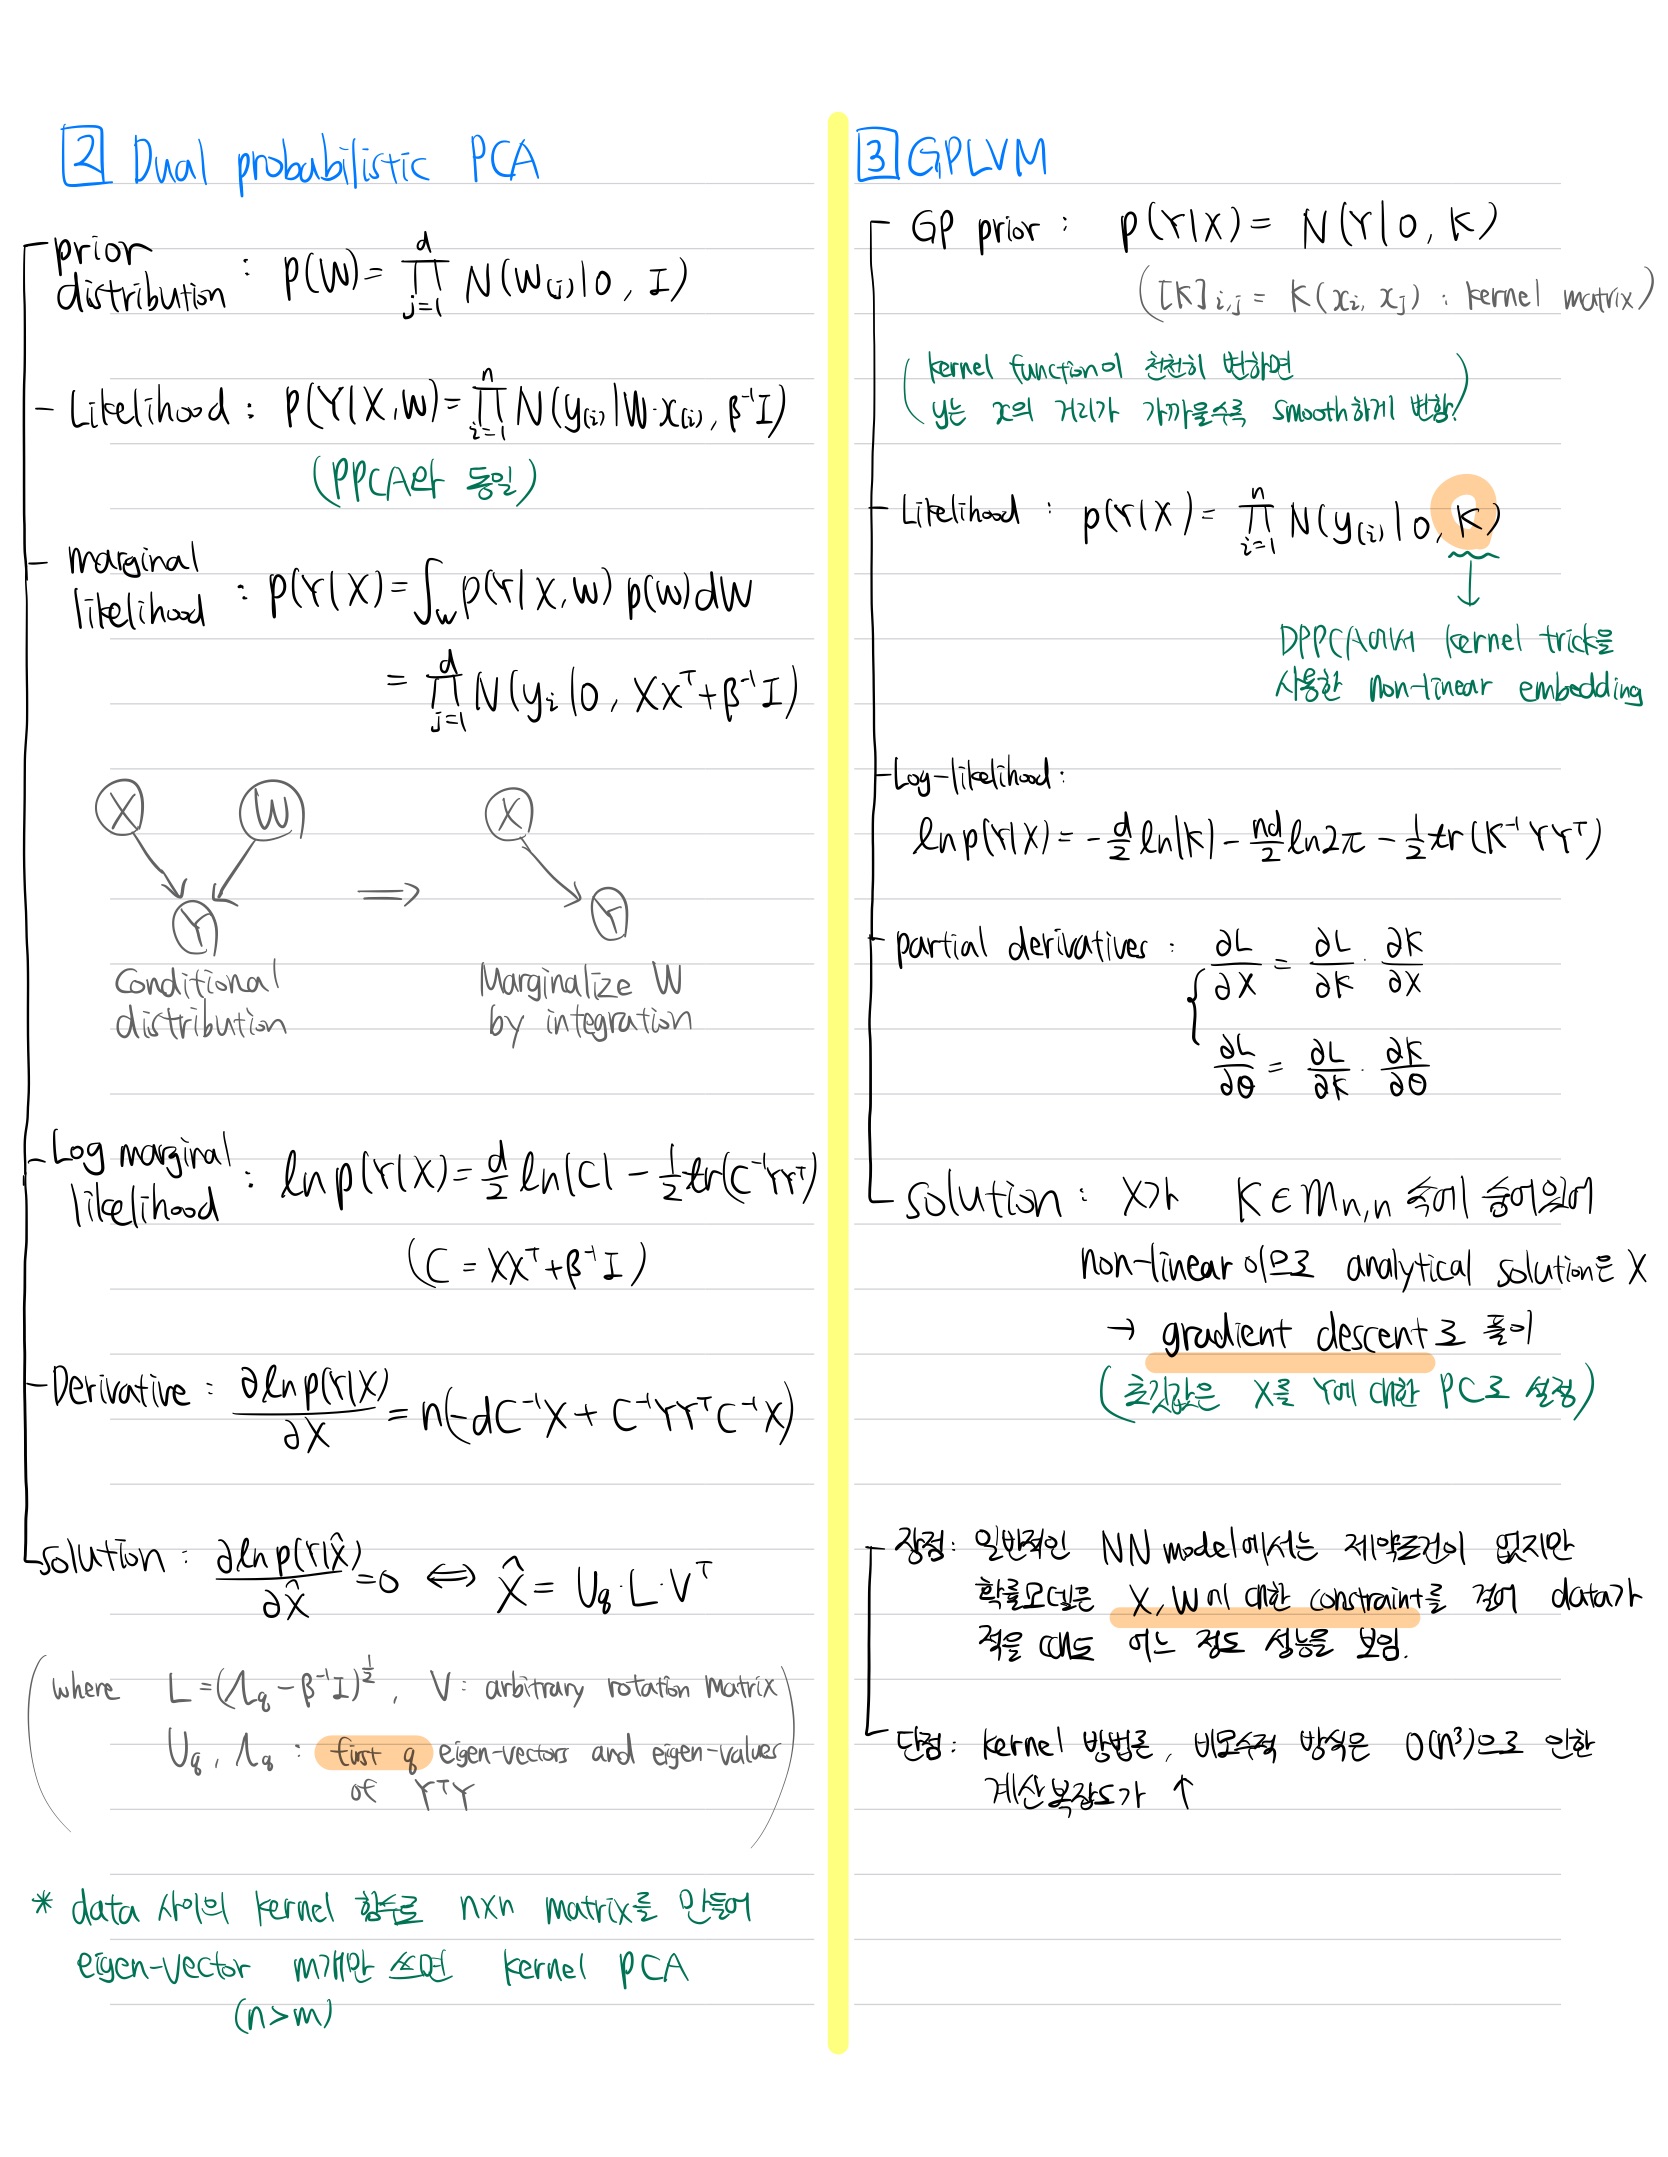 2 Dual probabilistic PCA
prior distribution : p(W) = ∏_{j=1}^{d} N(W_(j) | 0, I)
- Likelihood : p(Y|X,W) = ∏_{i=1}^{n} N(y_(i) | W·x_(i), β⁻¹I)
(PPCA와 동일)
- marginal likelihood : p(Y|X) = ∫_W p(Y|X,W) p(W) dW
= ∏_{j=1}^{d} N(y_i | 0, XXᵀ+β⁻¹I)
X W Y ⟹ X Y
Conditional distribution
Marginalize W by integration
- Log marginal likelihood : ln p(Y|X) = d/2 ln|C| - 1/2 tr(C⁻¹YYᵀ)
(C = XXᵀ+β⁻¹I)
- Derivative : ∂ln p(Y|X)/∂X = n(-dC⁻¹X + C⁻¹YYᵀC⁻¹X)
solution : ∂ln p(Y|X̂)/∂X̂ = 0 ⟺ X̂ = U_q·L·Vᵀ
(where L = (Λ_q - β⁻¹I)^{1/2}, V : arbitrary rotation matrix
U_q, Λ_q : first q eigen-vectors and eigen-values
of YᵀY)
* data 사이의 kernel 함수로 n×n matrix를 만들어
eigen-vector m개만 쓰면 kernel PCA
(n>m)
3 GPLVM
- GP prior : p(Y|X) = N(Y|0, K)
([K]_{i,j} = K(x_i, x_j) : kernel matrix)
(kernel function이 천천히 변하면
y는 x의 거리가 가까울수록 smooth하게 변함.)
- Likelihood : p(Y|X) = ∏_{i=1}^{n} N(y_(i) | 0, K)
↓
DPPCA에서 kernel trick을
사용한 non-linear embedding
- Log-likelihood :
ln p(Y|X) = - d/2 ln|K| - nd/2 ln2π - 1/2 tr(K⁻¹YYᵀ)
- partial derivatives : { ∂L/∂X = ∂L/∂K · ∂K/∂X
∂L/∂θ = ∂L/∂K · ∂K/∂θ
solution : X가 K∈M_{n,n} 속에 숨어있어
non-linear이므로 analytical solution은 X
→ gradient descent로 풀이
(초깃값은 X를 Y에 대한 PC로 설정)
장점 : 일반적인 NN model에서는 제약조건이 없지만
확률모델은 X, W에 대한 constraint를 걸어 data가
적을 때도 어느 정도 성능을 보임.
단점 : kernel 방법론, 비모수적 방식은 O(n³)으로 인한
계산복잡도가 ↑